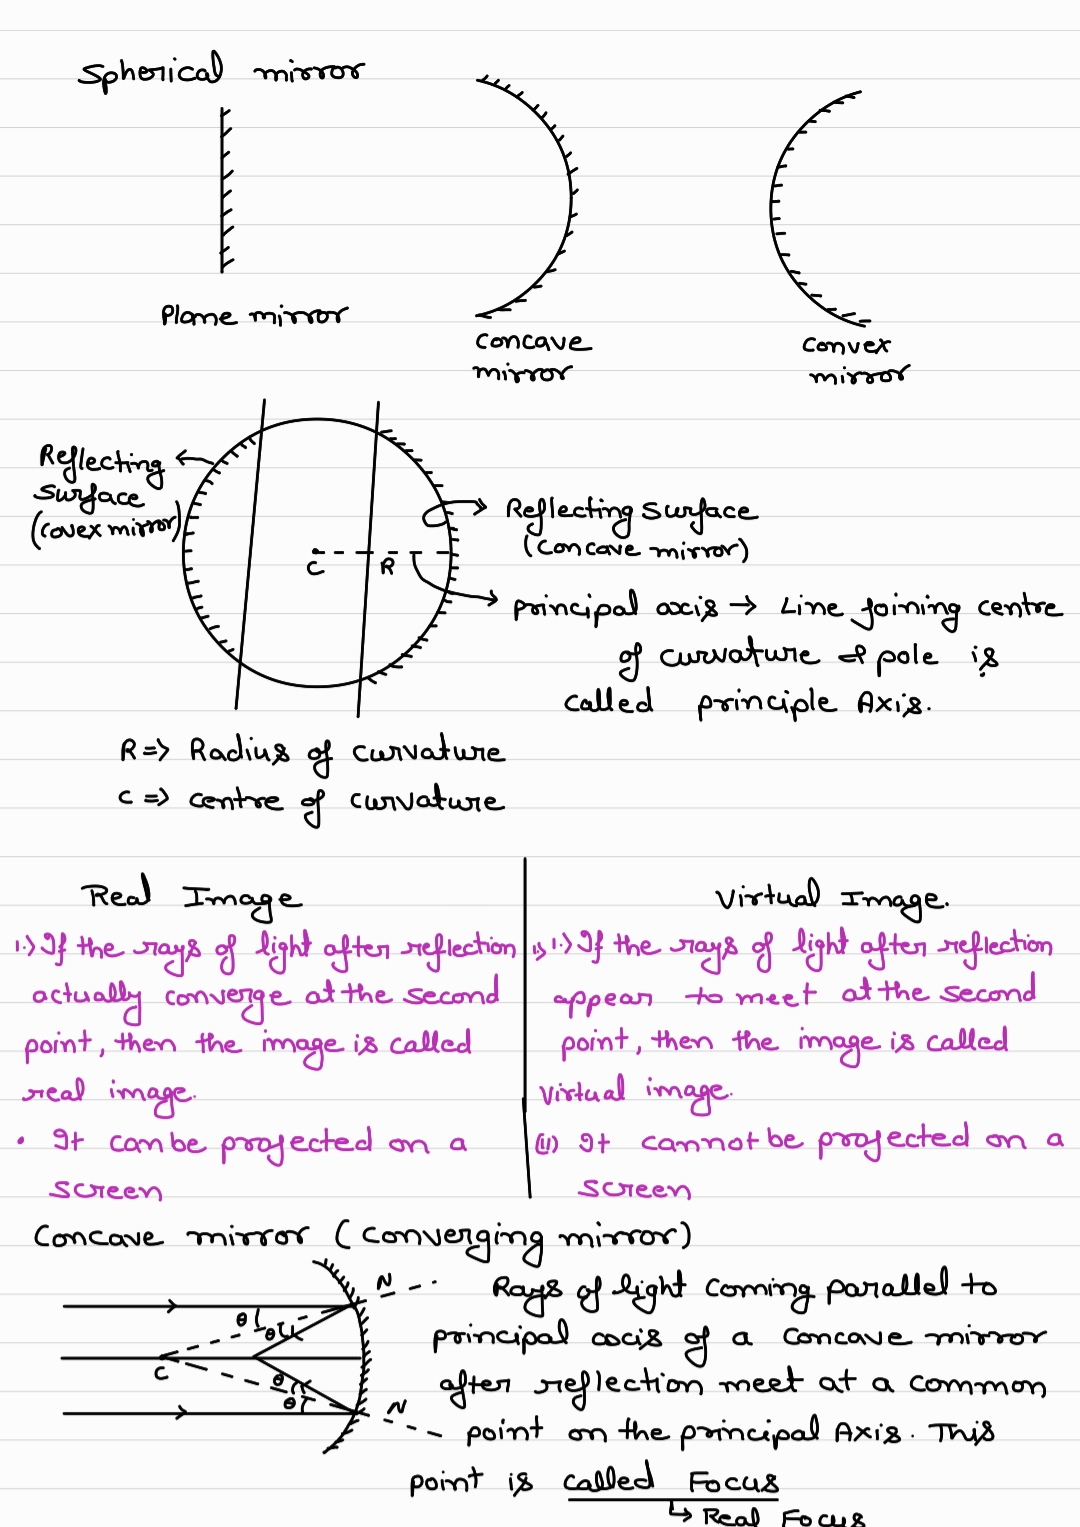 Spherical mirror
Plane mirror
Concave
mirror
Convex
mirror
Reflecting
Surface
(Covex mirror)
Reflecting Surface
(Concave mirror)
C
R
principal axis → Line joining centre
of curvature & pole is
called principle Axis.
R => Radius of curvature
C => centre of curvature
Real Image
1.) If the rays of light after reflection
actually converge at the second
point, then the image is called
real image.
• It can be projected on a
screen
Virtual Image.
1) 1.) If the rays of light after reflection
appear to meet at the second
point, then the image is called
Virtual image.
(ii) It cannot be projected on a
screen
Concave mirror (Converging mirror)
N
θ
θ
C
θ
θ
N
Rays of light coming parallel to
principal axis of a concave mirror
after reflection meet at a common
point on the principal Axis. This
point is called Focus
↳ Real Focus